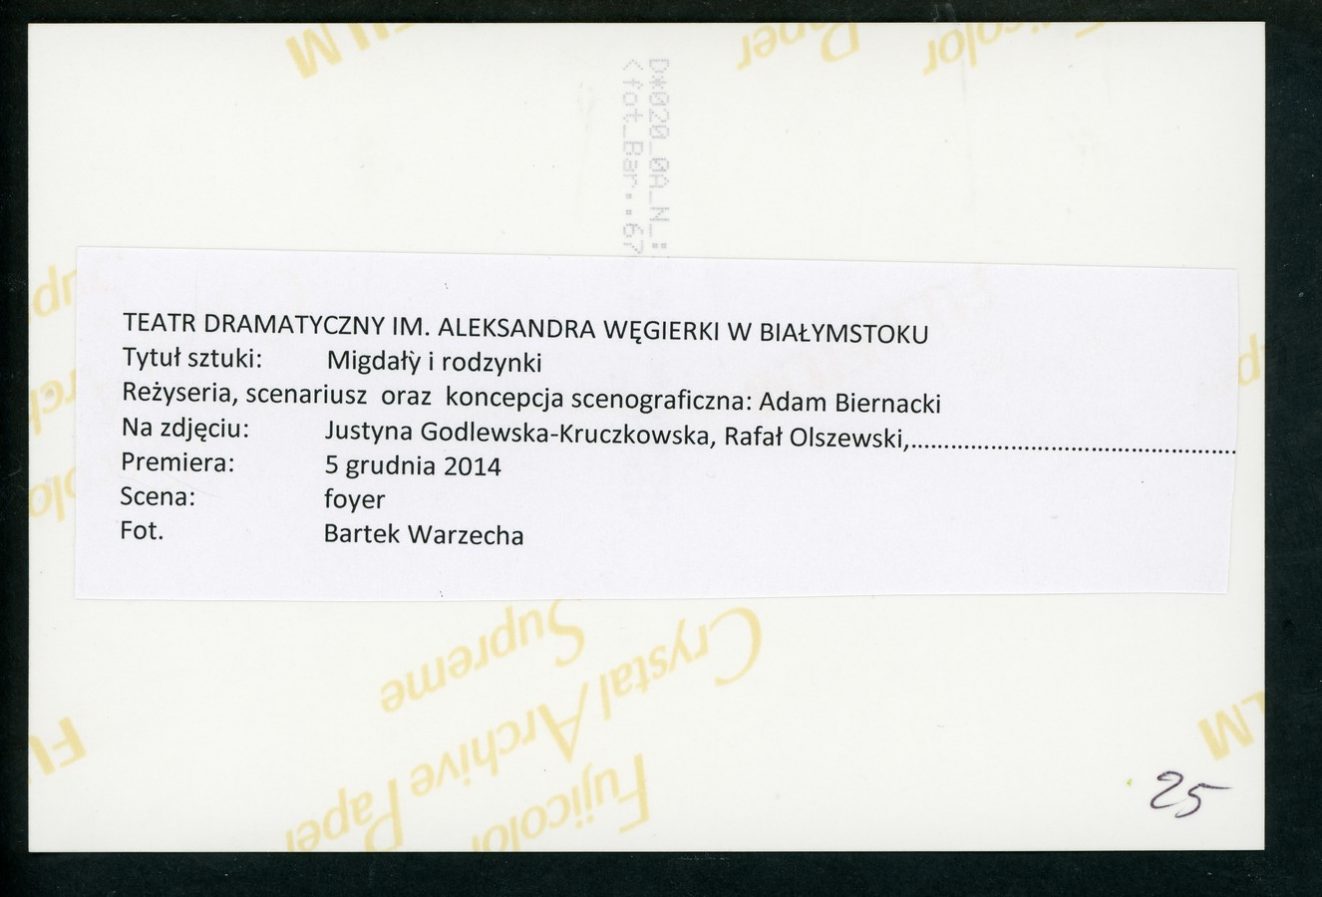 D*020_0A_N_:
<fot_Bar..67
TEATR DRAMATYCZNY IM. ALEKSANDRA WĘGIERKI W BIAŁYMSTOKU
Tytuł sztuki: Migdały i rodzynki
Reżyseria, scenariusz oraz koncepcja scenograficzna: Adam Biernacki
Na zdjęciu: Justyna Godlewska-Kruczkowska, Rafał Olszewski,..................................................
Premiera: 5 grudnia 2014
Scena: foyer
Fot. Bartek Warzecha
Fujicolor
Crystal Archive Paper
Supreme
25